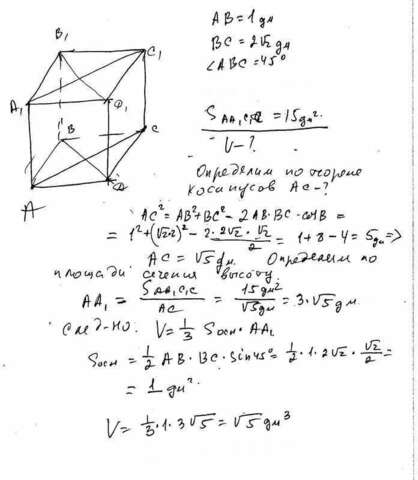 AB = 1 дм
BC = 2√2 дм
∠ABC = 45°
B₁
C₁
A₁
D₁
B
C
A
D
S AA₁C₁C = 15 дм².
V - ?
Определим по теореме
косинусов AC - ?
AC² = AB² + BC² - 2AB · BC · cos B =
= 1² + (√2·2)² - 2 · 2√2 · √2/2 = 1 + 8 - 4 = 5 дм ⇒
AC = √5 дм. Определим по
площади сечения высоту
AA₁ = S AA₁C₁C / AC = 15 дм² / √5 дм = 3·√5 дм.
След-но. V = 1/3 Sосн · AA₁
Sосн = 1/2 AB · BC · sin 45° = 1/2 · 1 · 2√2 · √2/2 =
= 1 дм².
V = 1/3 · 1 · 3√5 = √5 дм³